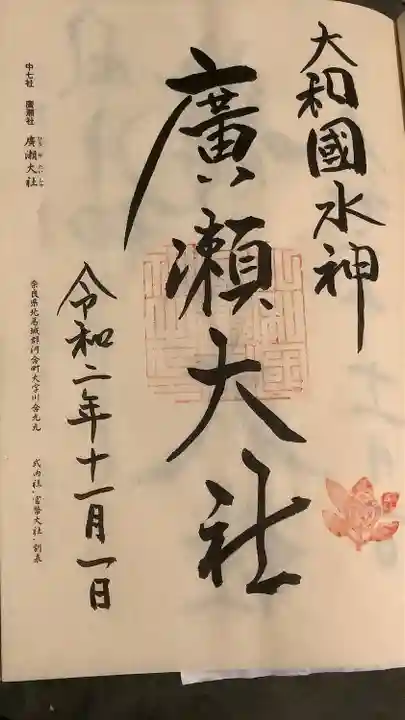 大和國水神
廣瀨大社
令和二年十一月一日
中七社　廣瀨社　廣瀨大社
奈良県北葛城郡河合町大字川合九九
式内社・官幣大社・別表